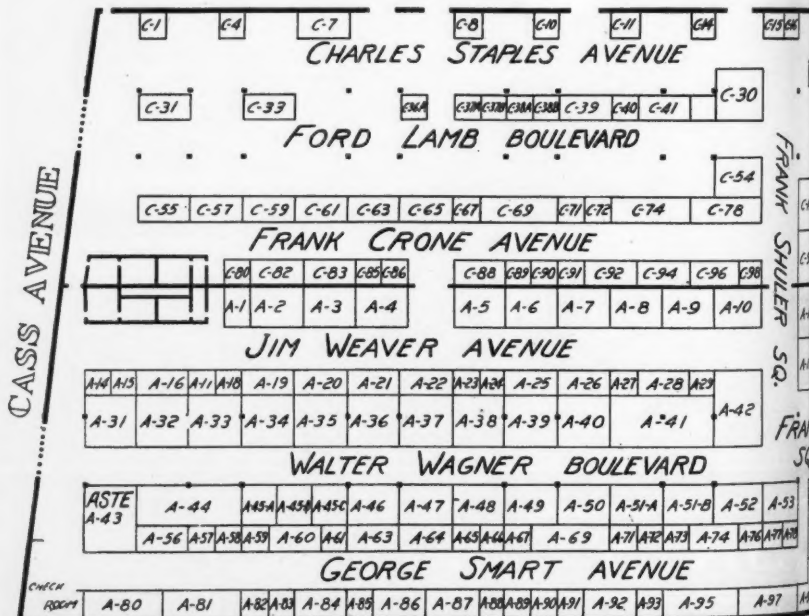 C-1 C-4 C-7 C-8 C-10 C-11 C-14 C-15 C-16
CHARLES STAPLES AVENUE
C-31 C-33 C-36A C-37A C-37B C-38A C-38B C-39 C-40 C-41 C-30
FORD LAMB BOULEVARD
C-54
C-55 C-57 C-59 C-61 C-63 C-65 C-67 C-69 C-71 C-72 C-74 C-78
FRANK CRONE AVENUE
C-80 C-82 C-83 C-85 C-86 C-88 C-89 C-90 C-91 C-92 C-94 C-96 C-98
A-1 A-2 A-3 A-4 A-5 A-6 A-7 A-8 A-9 A-10
JIM WEAVER AVENUE
A-14 A-15 A-16 A-17 A-18 A-19 A-20 A-21 A-22 A-23 A-24 A-25 A-26 A-27 A-28 A-29
A-31 A-32 A-33 A-34 A-35 A-36 A-37 A-38 A-39 A-40 A-41 A-42
WALTER WAGNER BOULEVARD
ASTE
A-43 A-44 A-45-A A-45-B A-45-C A-46 A-47 A-48 A-49 A-50 A-51-A A-51-B A-52 A-53
A-56 A-57 A-58 A-59 A-60 A-61 A-63 A-64 A-65 A-66 A-67 A-69 A-71 A-72 A-73 A-74 A-76 A-77 A-78
GEORGE SMART AVENUE
CHECK
ROOM A-80 A-81 A-82 A-83 A-84 A-85 A-86 A-87 A-88 A-89 A-90 A-91 A-92 A-93 A-95 A-97
CASS AVENUE
FRANK SHULER SQ.